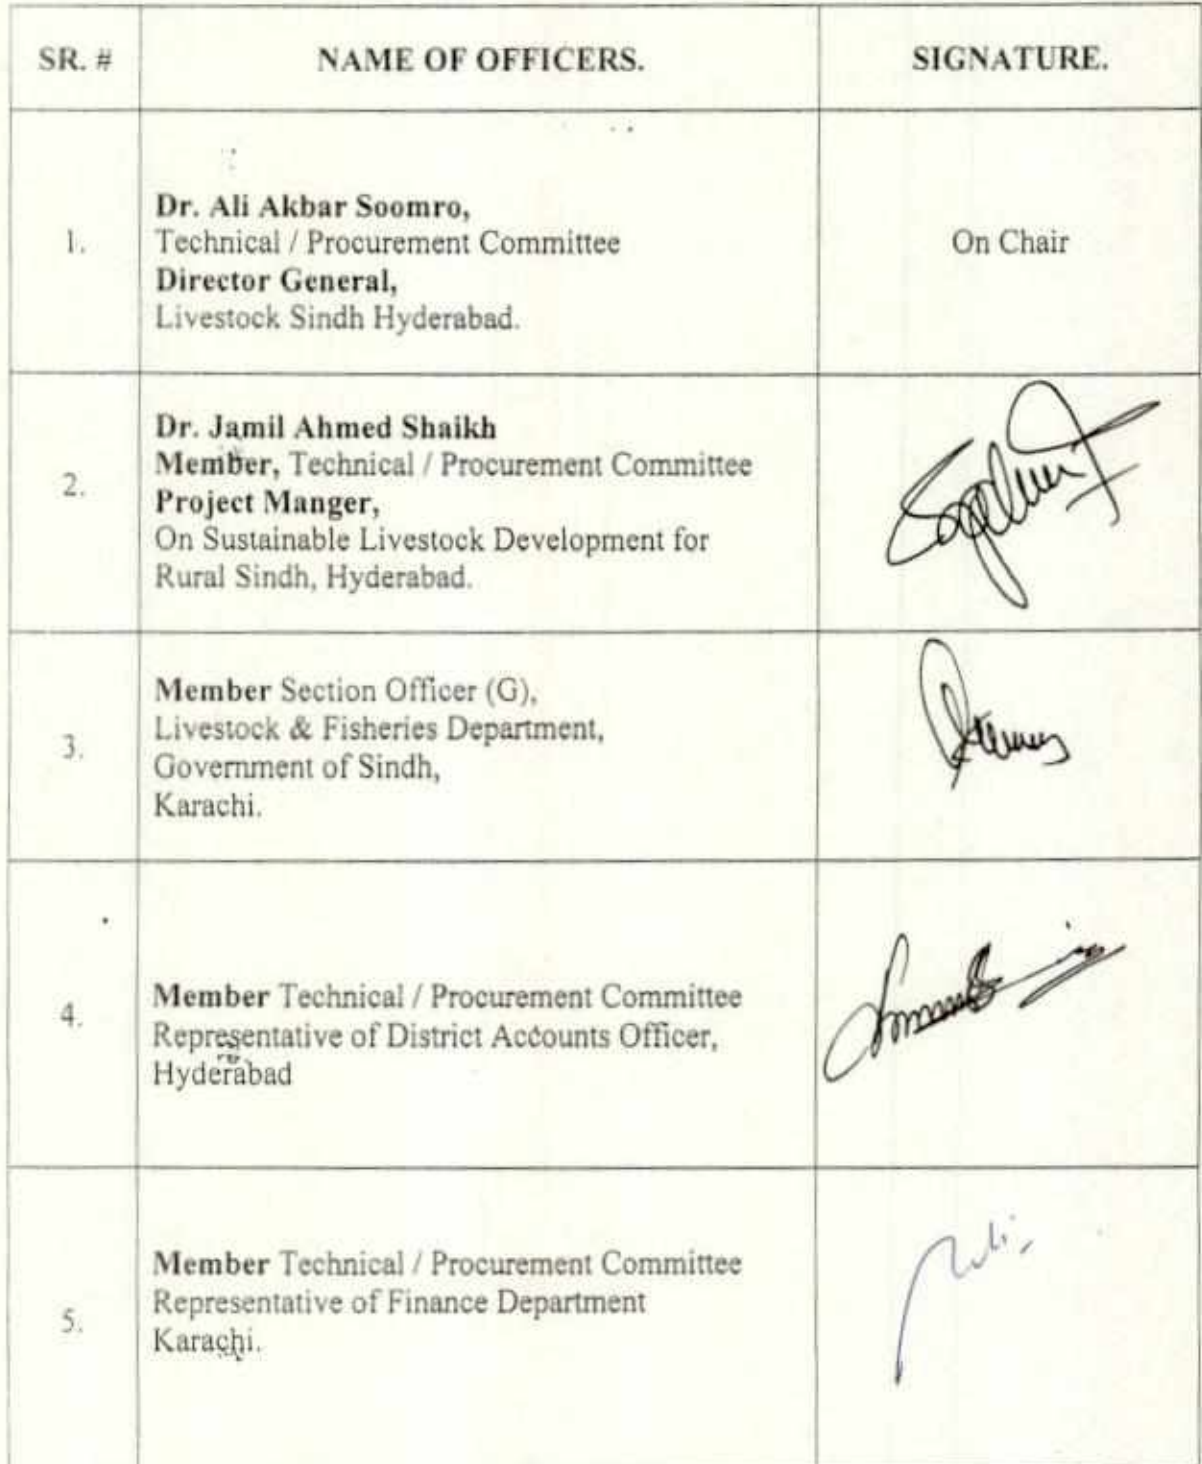 SR. # NAME OF OFFICERS. SIGNATURE.
1.
Dr. Ali Akbar Soomro,
Technical / Procurement Committee
Director General,
Livestock Sindh Hyderabad.
On Chair
2.
Dr. Jamil Ahmed Shaikh
Member, Technical / Procurement Committee
Project Manger,
On Sustainable Livestock Development for
Rural Sindh, Hyderabad.
3.
Member Section Officer (G),
Livestock & Fisheries Department,
Government of Sindh,
Karachi.
4.
Member Technical / Procurement Committee
Representative of District Accounts Officer,
Hyderabad
5.
Member Technical / Procurement Committee
Representative of Finance Department
Karachi.